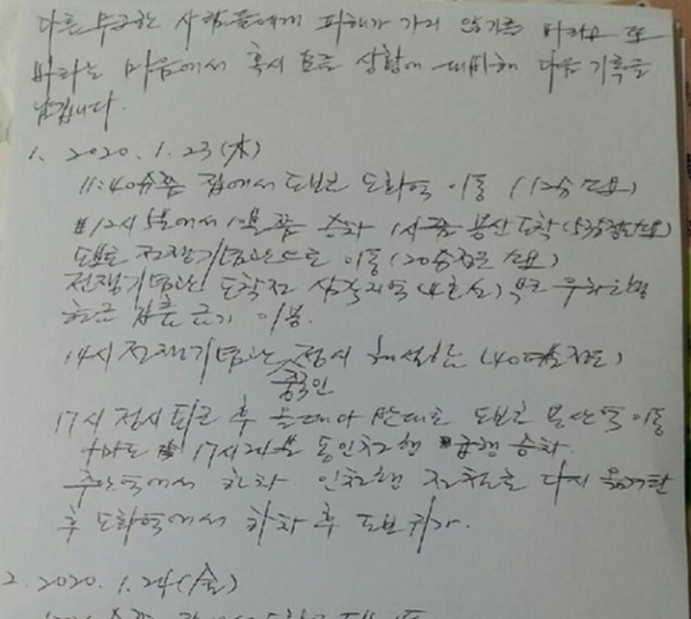 다른 무고한 사람들에게 피해가 가지 않기를 바라고 또
바라는 마음에서 혹시 모를 상황에 대비해 다음 기록을
남깁니다.
1. 2020. 1. 23(木)
11:40分쯤 집에서 도보로 도화역 이동 (12分 소요)
12시 에서 쯤 승차 1시쯤 용산 도착
도보로 전쟁기념관으로 이동 (20分정도 소요)
전쟁기념관 도착전 삼각지역(4호선) 부근
출근 용.
14시 전쟁기념관 정시 해설 (40여분 정도)
중국인
17시 정시 퇴근 후 올때와 반대로 도보로 용산역 이동
아마도 17시 24분 동인천행 급행 승차.
주안역에서 하차 인천행 전철로 다시 옮겨탄
후 도화역에서 하차 후 도보 귀가.
2. 2020. 1. 24(金)